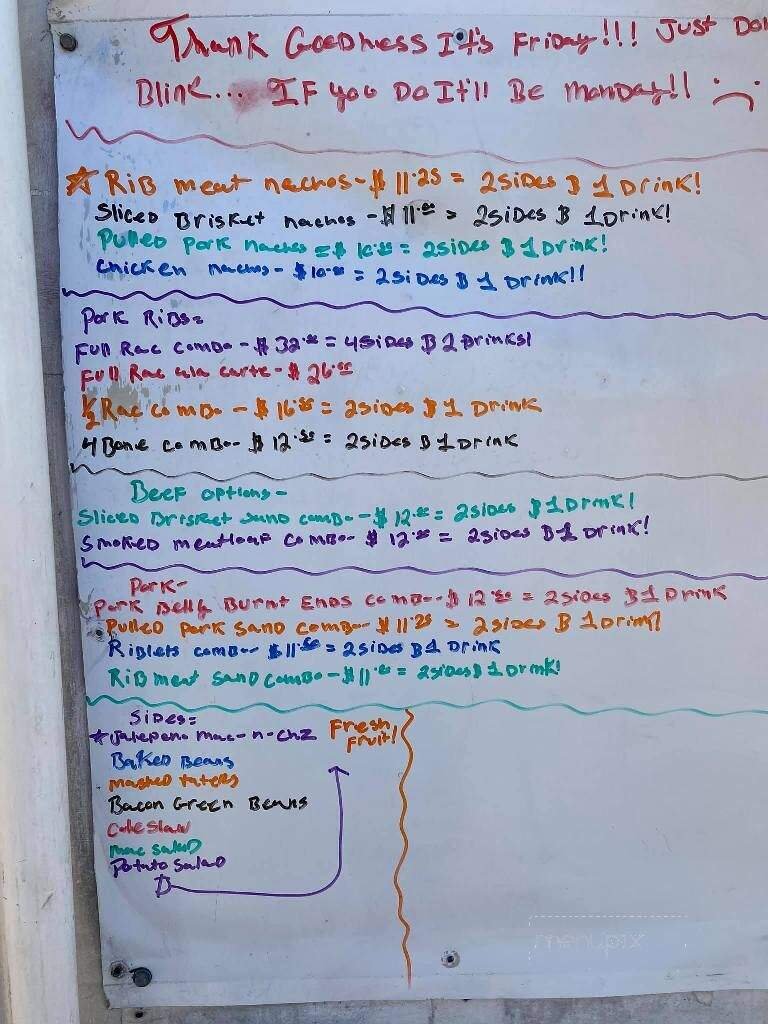 Thank Goodness It's Friday!!! Just Don
Blink... If you Do It'll Be Monday!!
☆ Rib meat nachos - $11.25 = 2 sides & 1 Drink!
Sliced Brisket nachos - $11.00 = 2 sides & 1 Drink!
Pulled pork nachos = $10.25 = 2 sides & 1 Drink!
Chicken nachos - $10.00 = 2 sides & 1 Drink!!
Pork Ribs =
Full Rac combo - $32.00 = 4 sides & 2 Drinks!
Full Rac ala carte - $26.00
1/2 Rac combo - $16.50 = 2 sides & 1 Drink
4 Bone combo - $12.50 = 2 sides & 1 Drink
Beef options -
Sliced Brisket sand combo - $12.00 = 2 sides & 1 Drink!
Smoked meatloaf combo - $12.00 = 2 sides & 1 Drink!
Pork -
Pork Belly Burnt Ends combo - $12.50 = 2 sides & 1 Drink
Pulled Pork sand combo - $11.25 = 2 sides & 1 Drink!
Riblets combo - $11.50 = 2 sides & 1 Drink
Rib meat sand combo - $11.50 = 2 sides & 1 Drink!
Sides =
*Jalepeno mac-n-chz
Baked Beans
mashed taters
Bacon Green Beans
Coleslaw
mac salad
Potato salad
&
Fresh
Fruit!
menupix